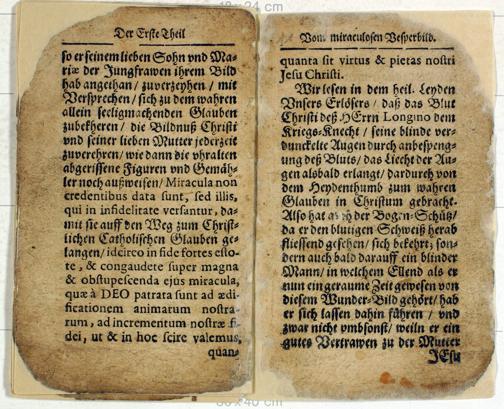 Der Erste Theil
so er seinem lieben Sohn vnd Ma-
riæ der Jungfrawen ihrem Bild
hab angethan/ zuverzeyhen/ mit
Versprechen/ sich zu dem wahren
allein seeligmachenden Glauben
zubekheren/ die Bildnuß Christi
vnd seiner lieben Mutter jederzeit
zuverehren/ wie dann die vhralten
abgerissene Figuren vnd Gemäh-
ler noch außweisen/ Miracula non
credentibus data sunt, sed illis,
qui in infidelitate versantur, da-
mit sie auff den Weg zum Christ-
lichen Catholischen Glauben ge-
langen/ idcirco in fide fortes esto-
te, & congaudete super magna
& obstupescenda ejus miracula,
quæ à DEO patrata sunt ad ædi-
ficationem animarum nostra-
rum, ad incrementum nostræ fi-
dei, ut & in hoc scire valemus,
quan-
Vom miraculosen Vesperbild.
quanta sit virtus & pietas nostri
Jesu Christi.
Wir lesen in dem heil. Leyden
Vnsers Erlösers/ daß das Blut
Christi deß HErrn Longino dem
Kriegs-Knecht/ seine blinde ver-
dunckelte Augen durch anbespreng-
ung deß Bluts/ das Liecht der Au-
gen alsbald erlangt/ dardurch von
dem Heydenthumb zum wahren
Glauben in Christum gebracht.
Also hat auch der Bogen-Schütz/
da er den blutigen Schweiß herab
fliessend gesehen/ sich bekehrt; son-
dern auch bald darauff ein blinder
Mann/ in welchem Ellend als er
nun ein geraume Zeit gewesen von
diesem Wunder-Bild gehört/ hab
er sich lassen dahin führen/ vnd
zwar nicht vmbsonst/ weiln er ein
gutes Vertrawen zu der Mutter
JEsu
30x40 cm